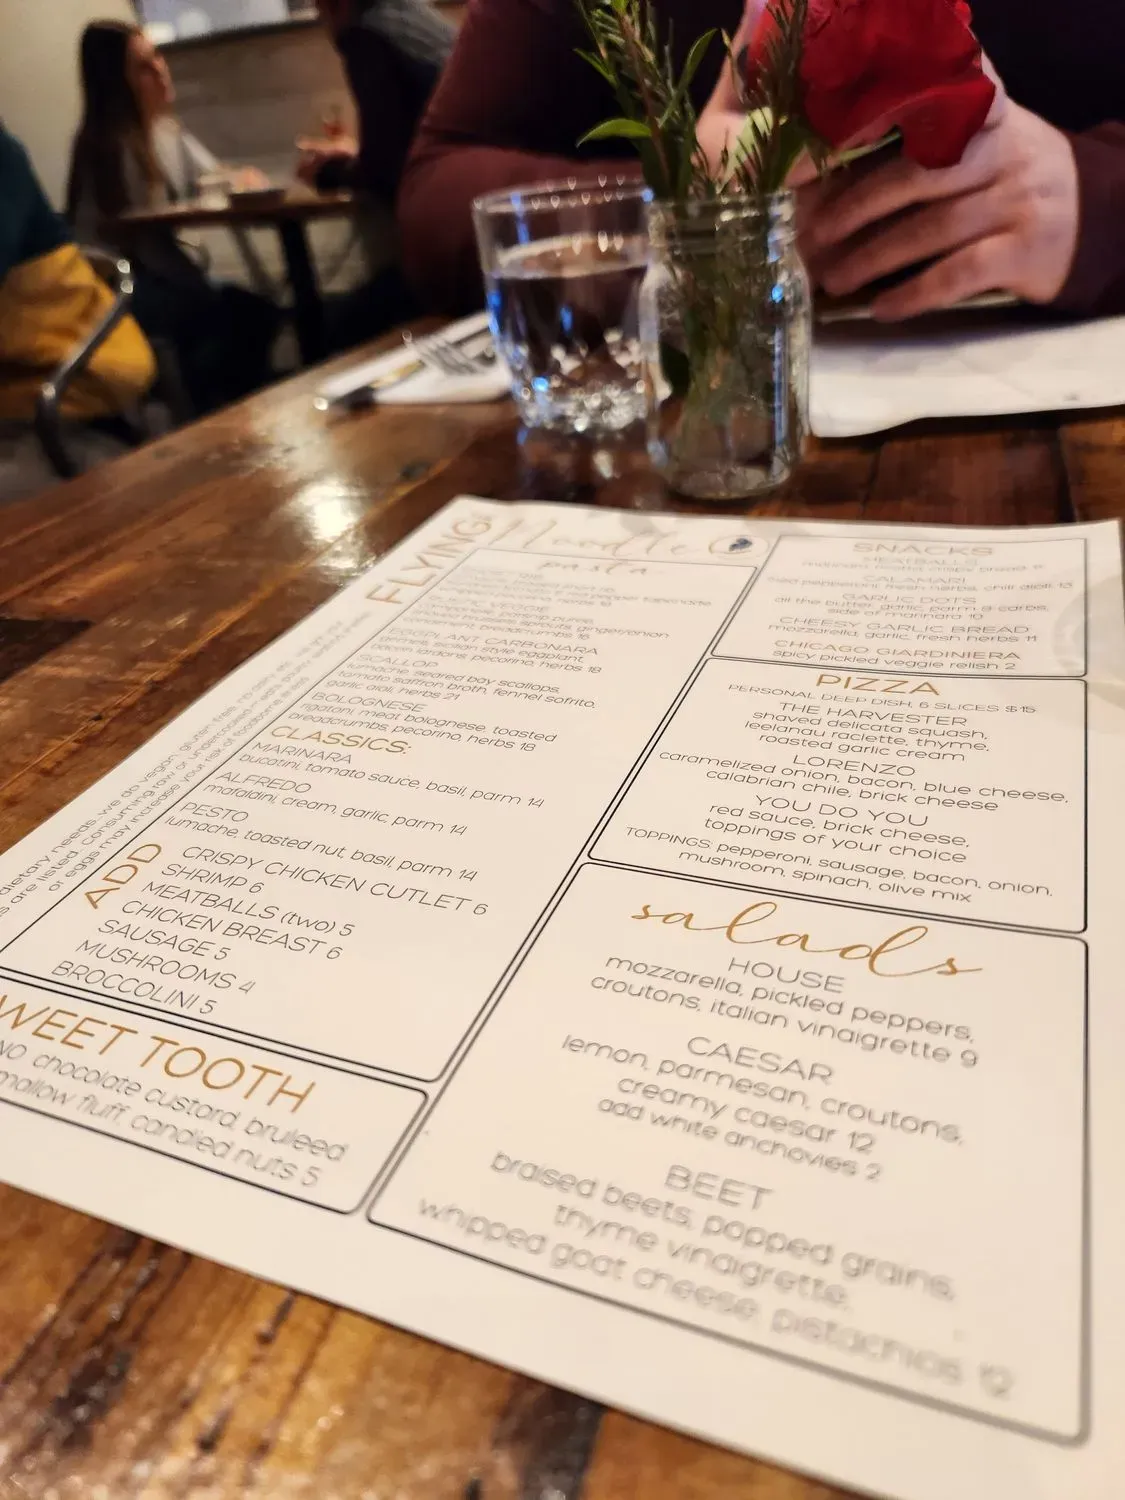 FLYING
Noodle
pasta
EGGPLANT CARBONARA
gemelli, sicilian style eggplant,
bacon lardons, pecorino, herbs 18
SCALLOP
lumache, seared bay scallops,
tomato saffron broth, fennel sofrito,
garlic aioli, herbs 21
BOLOGNESE
rigatoni, meat bolognese, toasted
breadcrumbs, pecorino, herbs 18
CLASSICS:
MARINARA
bucatini, tomato sauce, basil, parm 14
ALFREDO
mafaldini, cream, garlic, parm 14
PESTO
lumache, toasted nut, basil, parm 14
ADD
CRISPY CHICKEN CUTLET 6
SHRIMP 6
MEATBALLS (two) 5
CHICKEN BREAST 6
SAUSAGE 5
MUSHROOMS 4
BROCCOLINI 5
dietary needs, we do vegan, gluten free, no dairy,
are listed. Consuming raw or undercooked
or eggs may increase your risk of foodborne illness
WEET TOOTH
NO chocolate custard, bruleed
mallow fluff, candied nuts 5
SNACKS
MEATBALLS
CALAMARI
fried pepperoncini, fresh herbs, chili aioli 13
GARLIC DOTS
all the butter, garlic, parm & carbs,
side of marinara 10
CHEESY GARLIC BREAD
mozzarella, garlic, fresh herbs 11
CHICAGO GIARDINIERA
spicy pickled veggie relish 2
PIZZA
PERSONAL DEEP DISH, 6 SLICES $15
THE HARVESTER
shaved delicata squash,
leelanau raclette, thyme,
roasted garlic cream
LORENZO
caramelized onion, bacon, blue cheese,
calabrian chile, brick cheese
YOU DO YOU
red sauce, brick cheese,
toppings of your choice
TOPPINGS: pepperoni, sausage, bacon, onion,
mushroom, spinach, olive mix
salads
HOUSE
mozzarella, pickled peppers,
croutons, italian vinaigrette 9
CAESAR
lemon, parmesan, croutons,
creamy caesar 12
add white anchovies 2
BEET
braised beets, popped grains,
thyme vinaigrette,
whipped goat cheese, pistachios 12